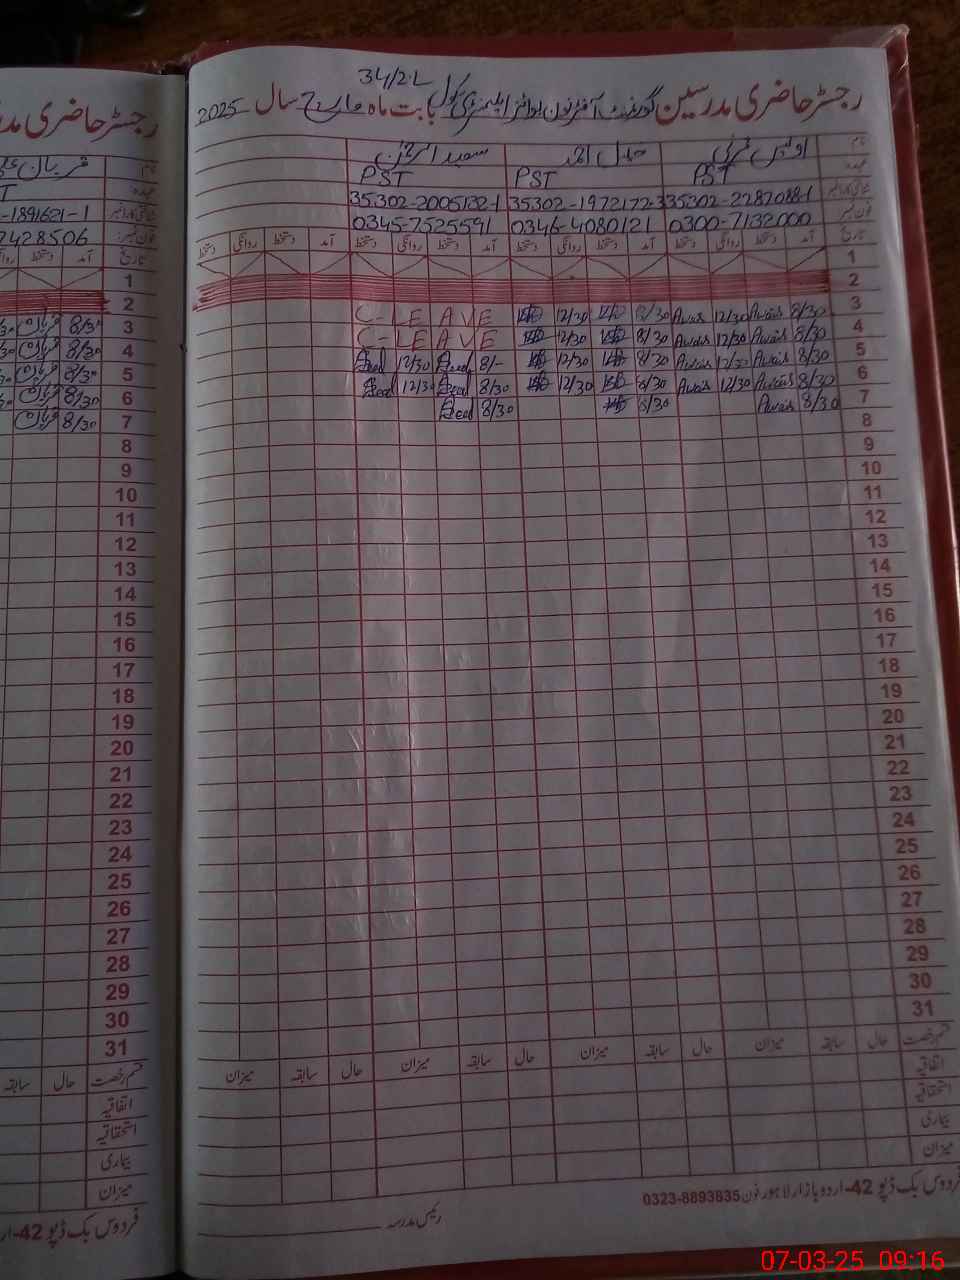 34/2L
رجسٹر حاضری مدرسین گورنمنٹ آفٹرنون بوائز ایلیمنٹری سکول بابت ماہ مارچ سال 2025
نام اویس قرنی سعید الرحمٰن
عہدہ PST PST PST
شناختی کارڈ نمبر 35302-2287088-1 35302-1972172-3 35302-2005132-1
فون نمبر 0300-7132000 0346-4080121 0345-7525591
تاریخ آمد دستخط روانگی دستخط آمد دستخط روانگی دستخط آمد دستخط روانگی دستخط آمد دستخط روانگی دستخط
1
2
3 8/30 Awais 12/30 Awais 8/30 12/30 C-LEAVE
4 8/30 Awais 12/30 Awais 8/30 12/30 C-LEAVE
5 8/30 Awais 12/30 Awais 8/30 12/30 8/- Saed 12/30 Saed
6 8/30 Awais 12/30 Awais 8/30 12/30 8/30 Saed 12/30 Saed
7 8/30 Awais 8/30 8/30 Saed
8
9
10
11
12
13
14
15
16
17
18
19
20
21
22
23
24
25
26
27
28
29
30
31
قسم رخصت حال سابقہ میزان حال سابقہ میزان حال سابقہ میزان
اتفاقیہ
استحقاقیہ
بیماری
میزان
فردوس بک ڈپو 42-اردو بازار لاہور فون 0323-8893835
رئیس مدرسہ
رجسٹر حاضری مد
نام قربان
عہدہ
شناختی کارڈ نمبر -1891621-1
فون نمبر: 7428506
تاریخ آمد دستخط
1
2
3 8/30 قربان
4 8/30 قربان
5 8/30 قربان
6 8/30 قربان
7 8/30 قربان
8
9
10
11
12
13
14
15
16
17
18
19
20
21
22
23
24
25
26
27
28
29
30
31
قسم رخصت حال سابقہ
اتفاقیہ
استحقاقیہ
بیماری
میزان
فردوس بک ڈپو 42-ار
07-03-25 09:16